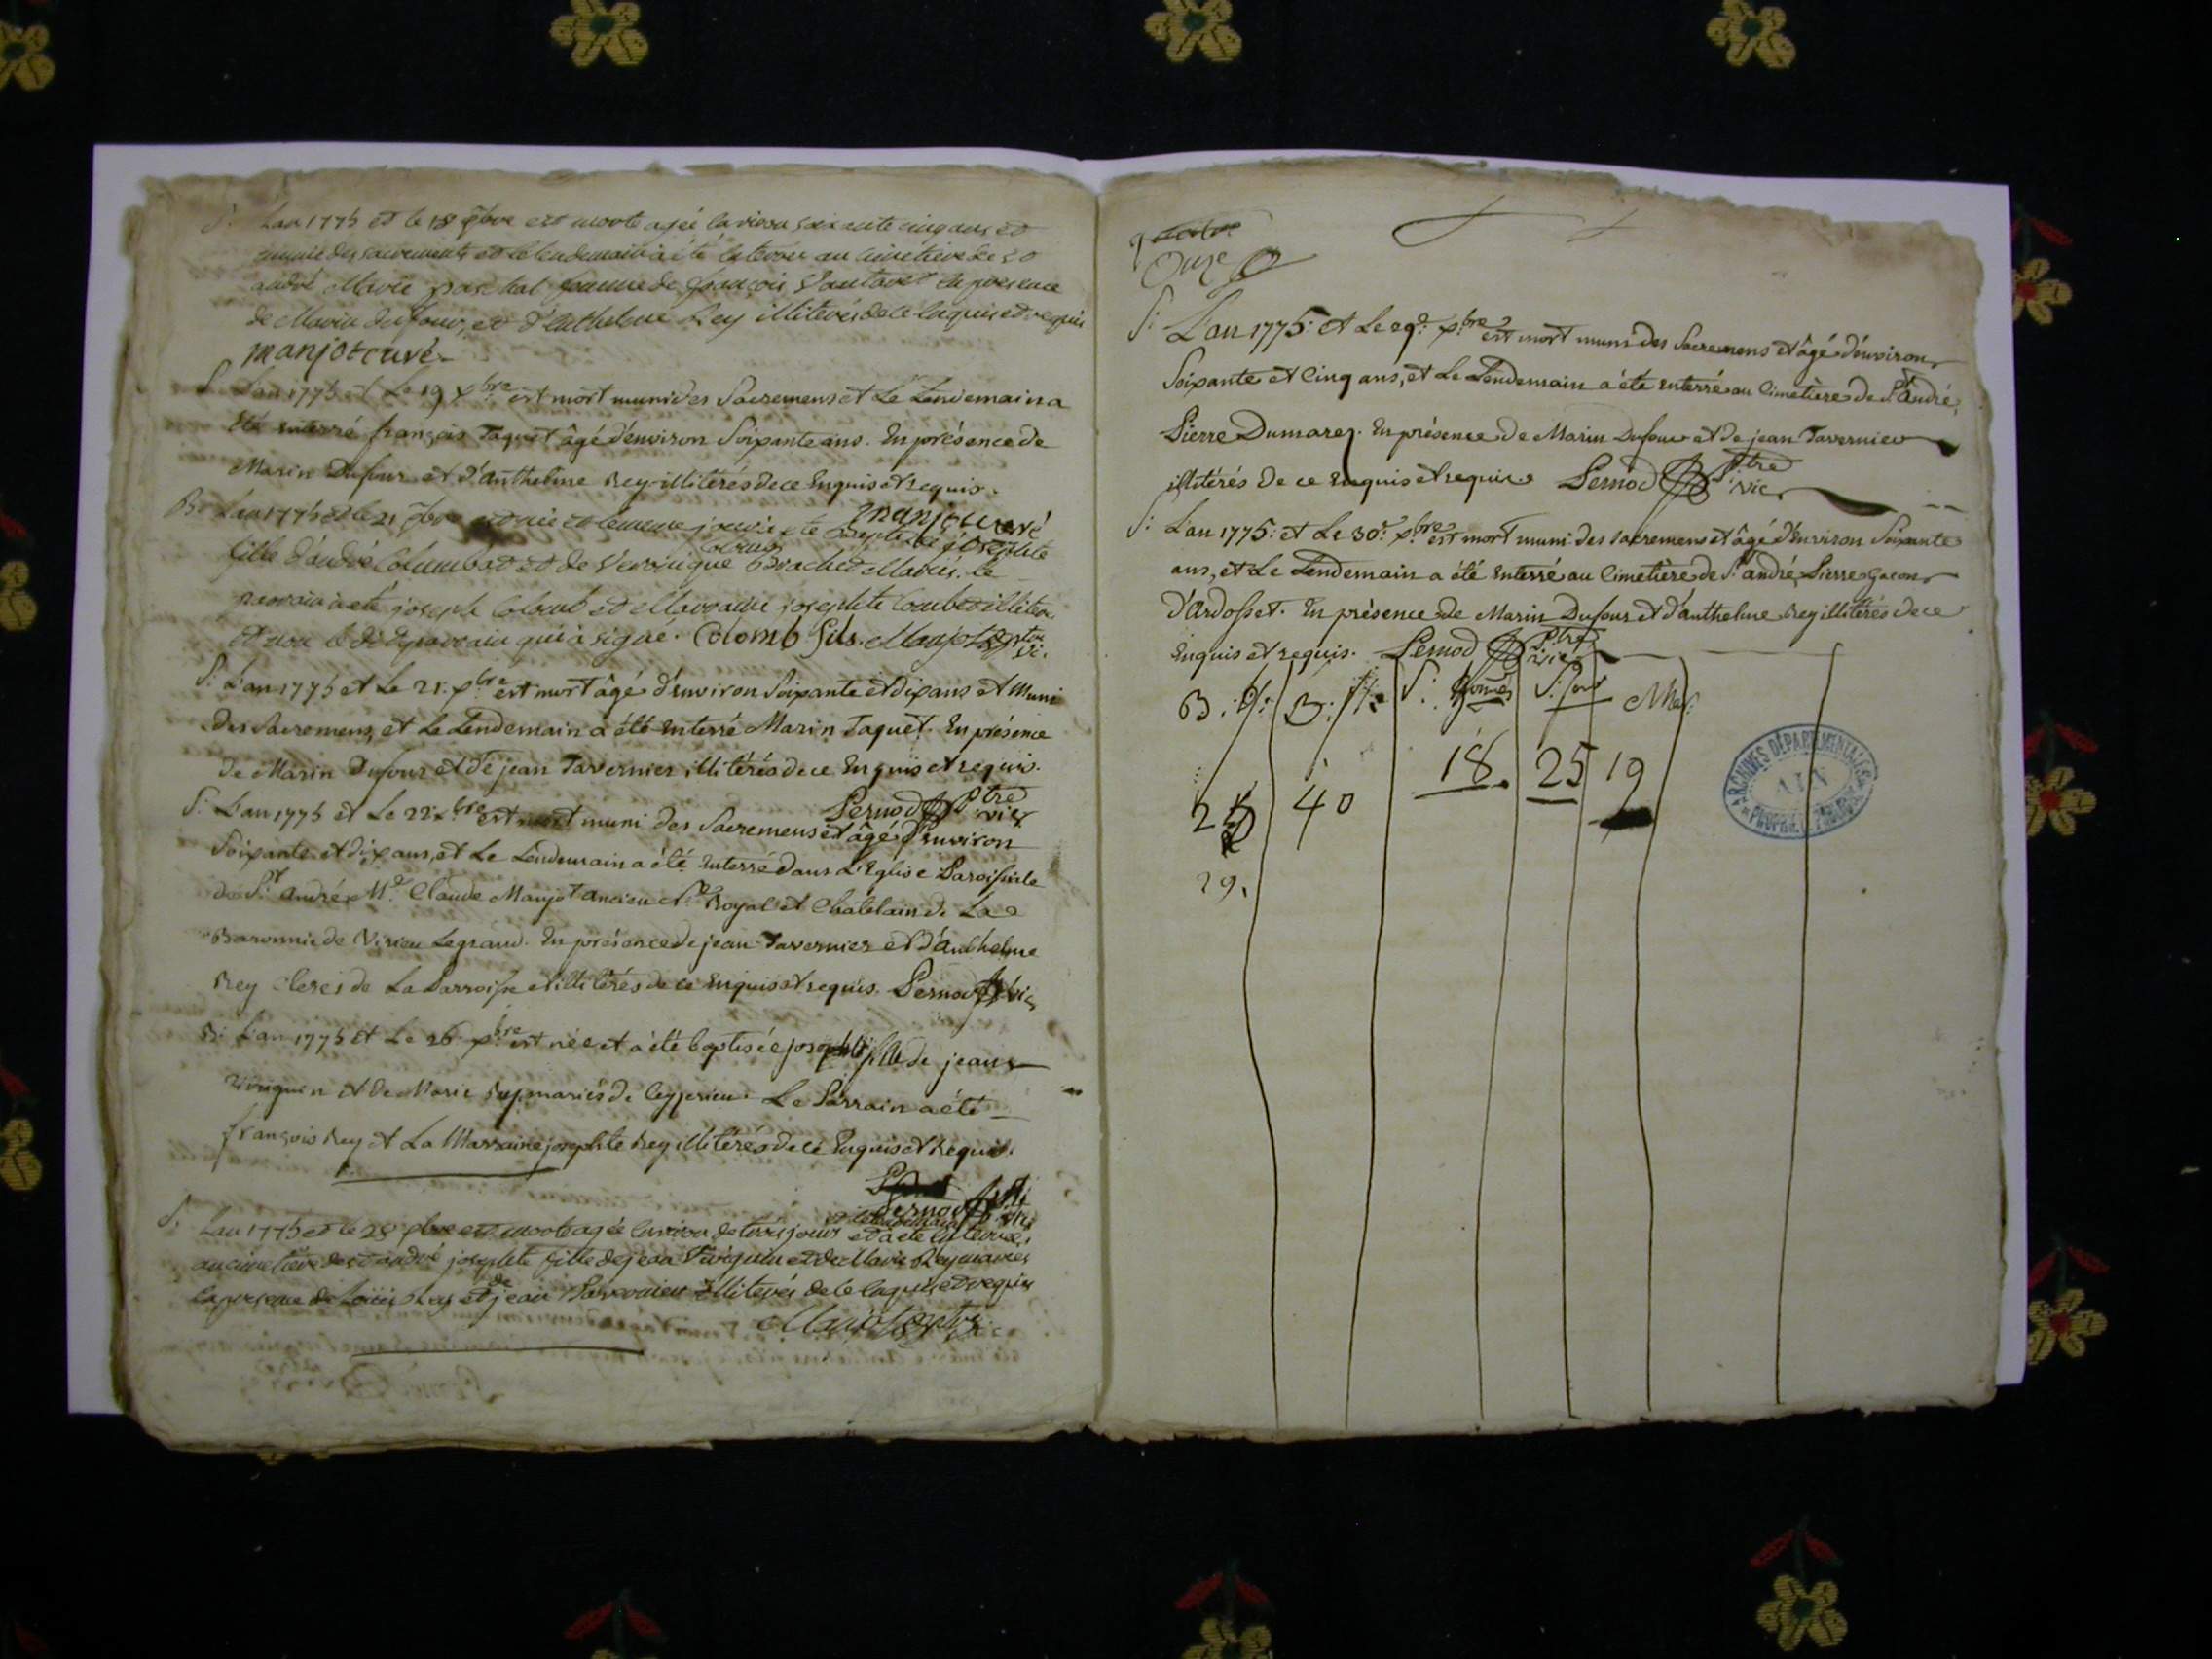 S. L'an 1775 et le 18 xbre est morte agée environ soixante cinq ans et
munie des sacrements et le lendemain a été enterrée au cimetiere de st
andré Marie paschal femme de françois en presence
de Marin dufour, et d'anthelme Rey illiterés de ce enquis et requis
manjot curé
S. L'an 1775 et Le 19 xbre est mort muni des Sacremens et Le Lendemain a
été enterré françois Taquet âgé d'environ Soixante ans. En présence de
Marin Dufour et d'anthelme Rey illitérés de ce Enquis et requis.
manjot curé
B. L'an 1775 et le 21 xbre est née et le meme jour a été baptisée josephte
fille d'andré Columbat et de Veronique Brachet Mariés. le
parrain a été joseph Colomb et Marraine josephte Combet illiteré
et non le dit parrain qui a signé. Colomb fils. Manjot
S. L'an 1775 et Le 21. xbre est mort âgé d'environ Soixante et dix ans et Muni
des Sacremens, et Le Lendemain a été Enterré Marin Taquet. En présence
de Marin Dufour et de jean Tavernier illitérés de ce Enquis et requis.
Pernod Ptre vic
S. L'an 1775 et Le 22 xbre est mort muni des Sacremens et âgé d'Environ
Soixante et dix ans, et Le Lendemain a été Enterré dans L'Eglise Paroissiale
de St. andré Me. Claude Manjot ancien Royal et Châtelain de La
Baronnie de Virieu Legrand. En présence de jean Tavernier et d'anthelme
Rey Clercs de La Parroisse et illitérés de ce Enquis et requis. Pernod vic
B. L'an 1775 et Le 26 xbre est née et a été baptisée josephte fille de jean
Vivignin et de Marie Rey mariés de Ceyzerieu. Le Parrain a été
françois Rey et La Marraine josephte Rey illitérés de ce Enquis et Requis.
Pernod
S. L'an 1775 et le 28 xbre est morte agée environ de trois jours et le lendemain a été enterrée
au cimetiere de st andré josephte fille de jean Vivignin et de Marie Rey mariés
en presence de Loüis Rey et de jean Tavernier illiterés de ce enquis et requis
Manjot
Onze
S: L'an 1775: et Le 29e xbre est mort muni des Sacremens et âgé d'environ
Soixante et Cinq ans, et Le Lendemain a été enterré au Cimetière de St. andré,
Pierre Dumarez. En présence de Marin Dufour et de jean Tavernier
illitérés de ce Enquis et requis. Pernod Ptre vic
S: L'an 1775: et Le 30e xbre est mort muni des sacremens et âgé d'Environ Soixante
ans, et Le Lendemain a été Enterré au Cimetière de St. andré Pierre Gacon
d'Ardosset. En présence de Marin Dufour et d'anthelme Rey illitérés de ce
Enquis et requis. Pernod Ptre vic
18. 25 19
40
29.
ARCHIVES DÉPARTEMENTALES
AIN
PROPRIÉTÉ PUBLIQUE